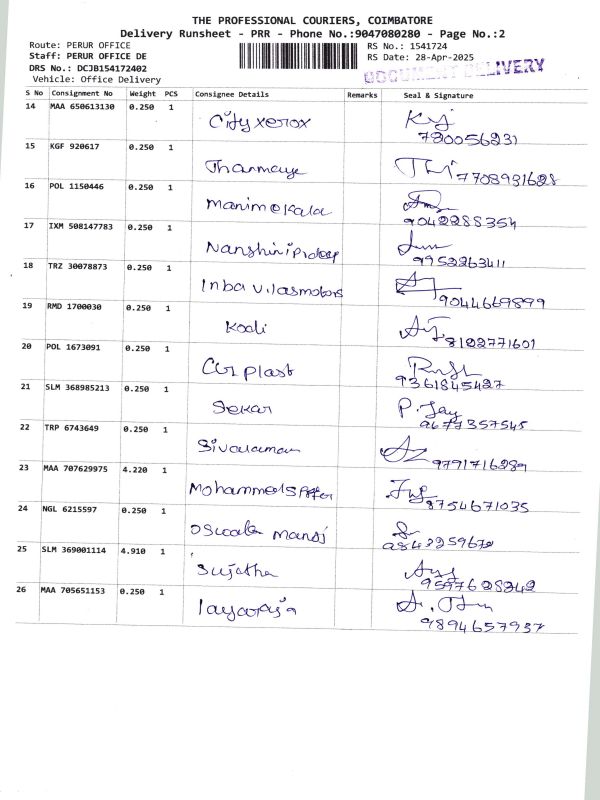 THE PROFESSIONAL COURIERS, COIMBATORE
Delivery Runsheet - PRR - Phone No.:9047080280 - Page No.:2
Route: PERUR OFFICE RS No.: 1541724
Staff: PERUR OFFICE DE RS Date: 28-Apr-2025
DRS No.: DCJB154172402 DOCUMENT DELIVERY
Vehicle: Office Delivery
S No Consignment No Weight PCS Consignee Details Remarks Seal & Signature
14 MAA 650613130 0.250 1
City xerox
15 KGF 920617 0.250 1
7708931628
16 POL 1150446 0.250 1
Manimekalai
9042288354
17 IXM 508147783 0.250 1
9952263411
18 TRZ 30078873 0.250 1
Inba vilasmotors
9044669899
19 RMD 1700030 0.250 1
8122771601
20 POL 1673091 0.250 1
plast
9361845427
21 SLM 368985213 0.250 1
Sekar P. Jay
9677357545
22 TRP 6743649 0.250 1
Sivaraman
9791716289
23 MAA 707629975 4.220 1
8754671035
24 NGL 6215597 0.250 1
25 SLM 369001114 4.910 1
Sujatha
9597628242
26 MAA 705651153 0.250 1
9894657937